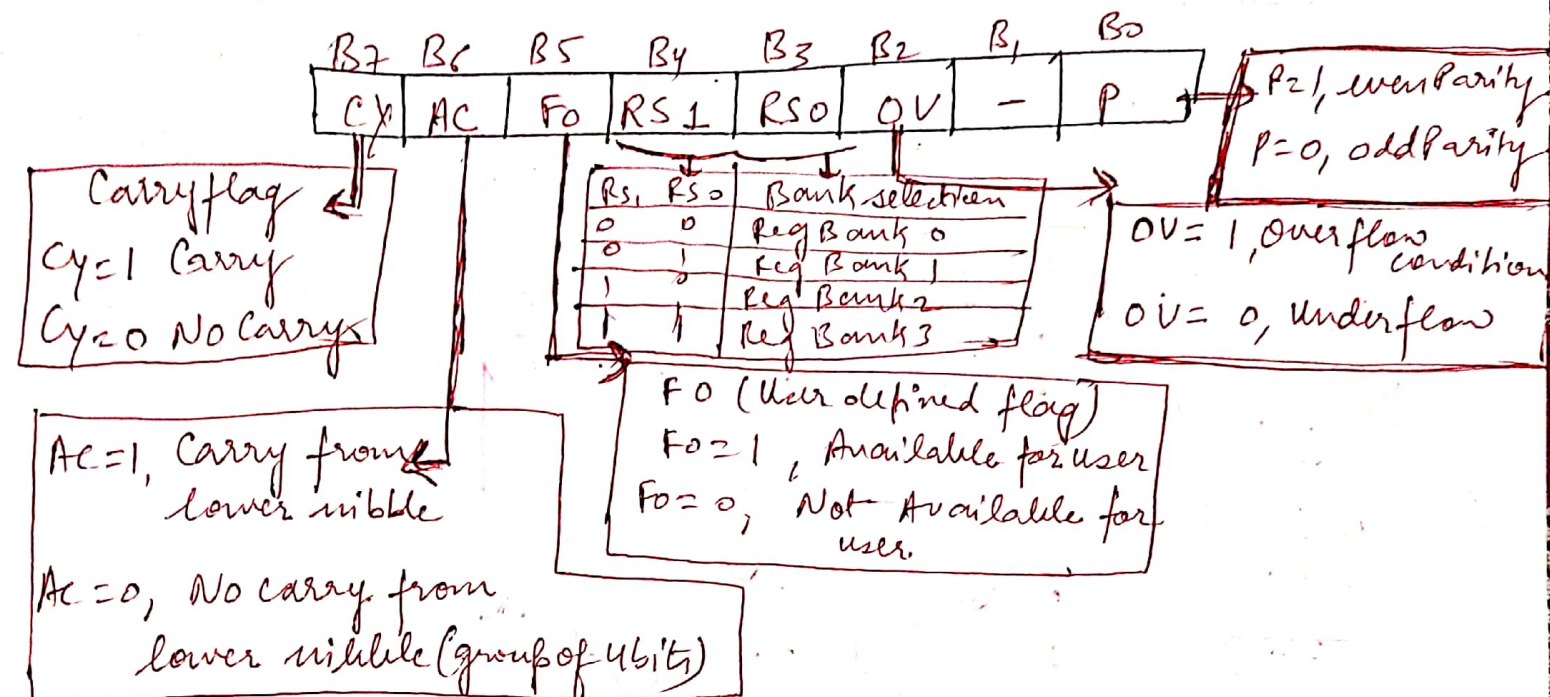 B7 B6 B5 B4 B3 B2 B1 B0
CY AC F0 RS1 RS0 OV - P
P=1, even Parity
P=0, odd Parity
Carry flag
Cy=1 Carry
Cy=0 No Carry
RS1 RS0 Bank selection
0 0 Reg Bank 0
0 1 Reg Bank 1
1 0 Reg Bank 2
1 1 Reg Bank 3
OV= 1, Overflow
condition
OV= 0, Underflow
F0 (User defined flag)
F0=1, Available for user
F0=0, Not Available for
user.
AC=1, Carry from
lower nibble
AC=0, No carry from
lower nibble (group of 4 bits)